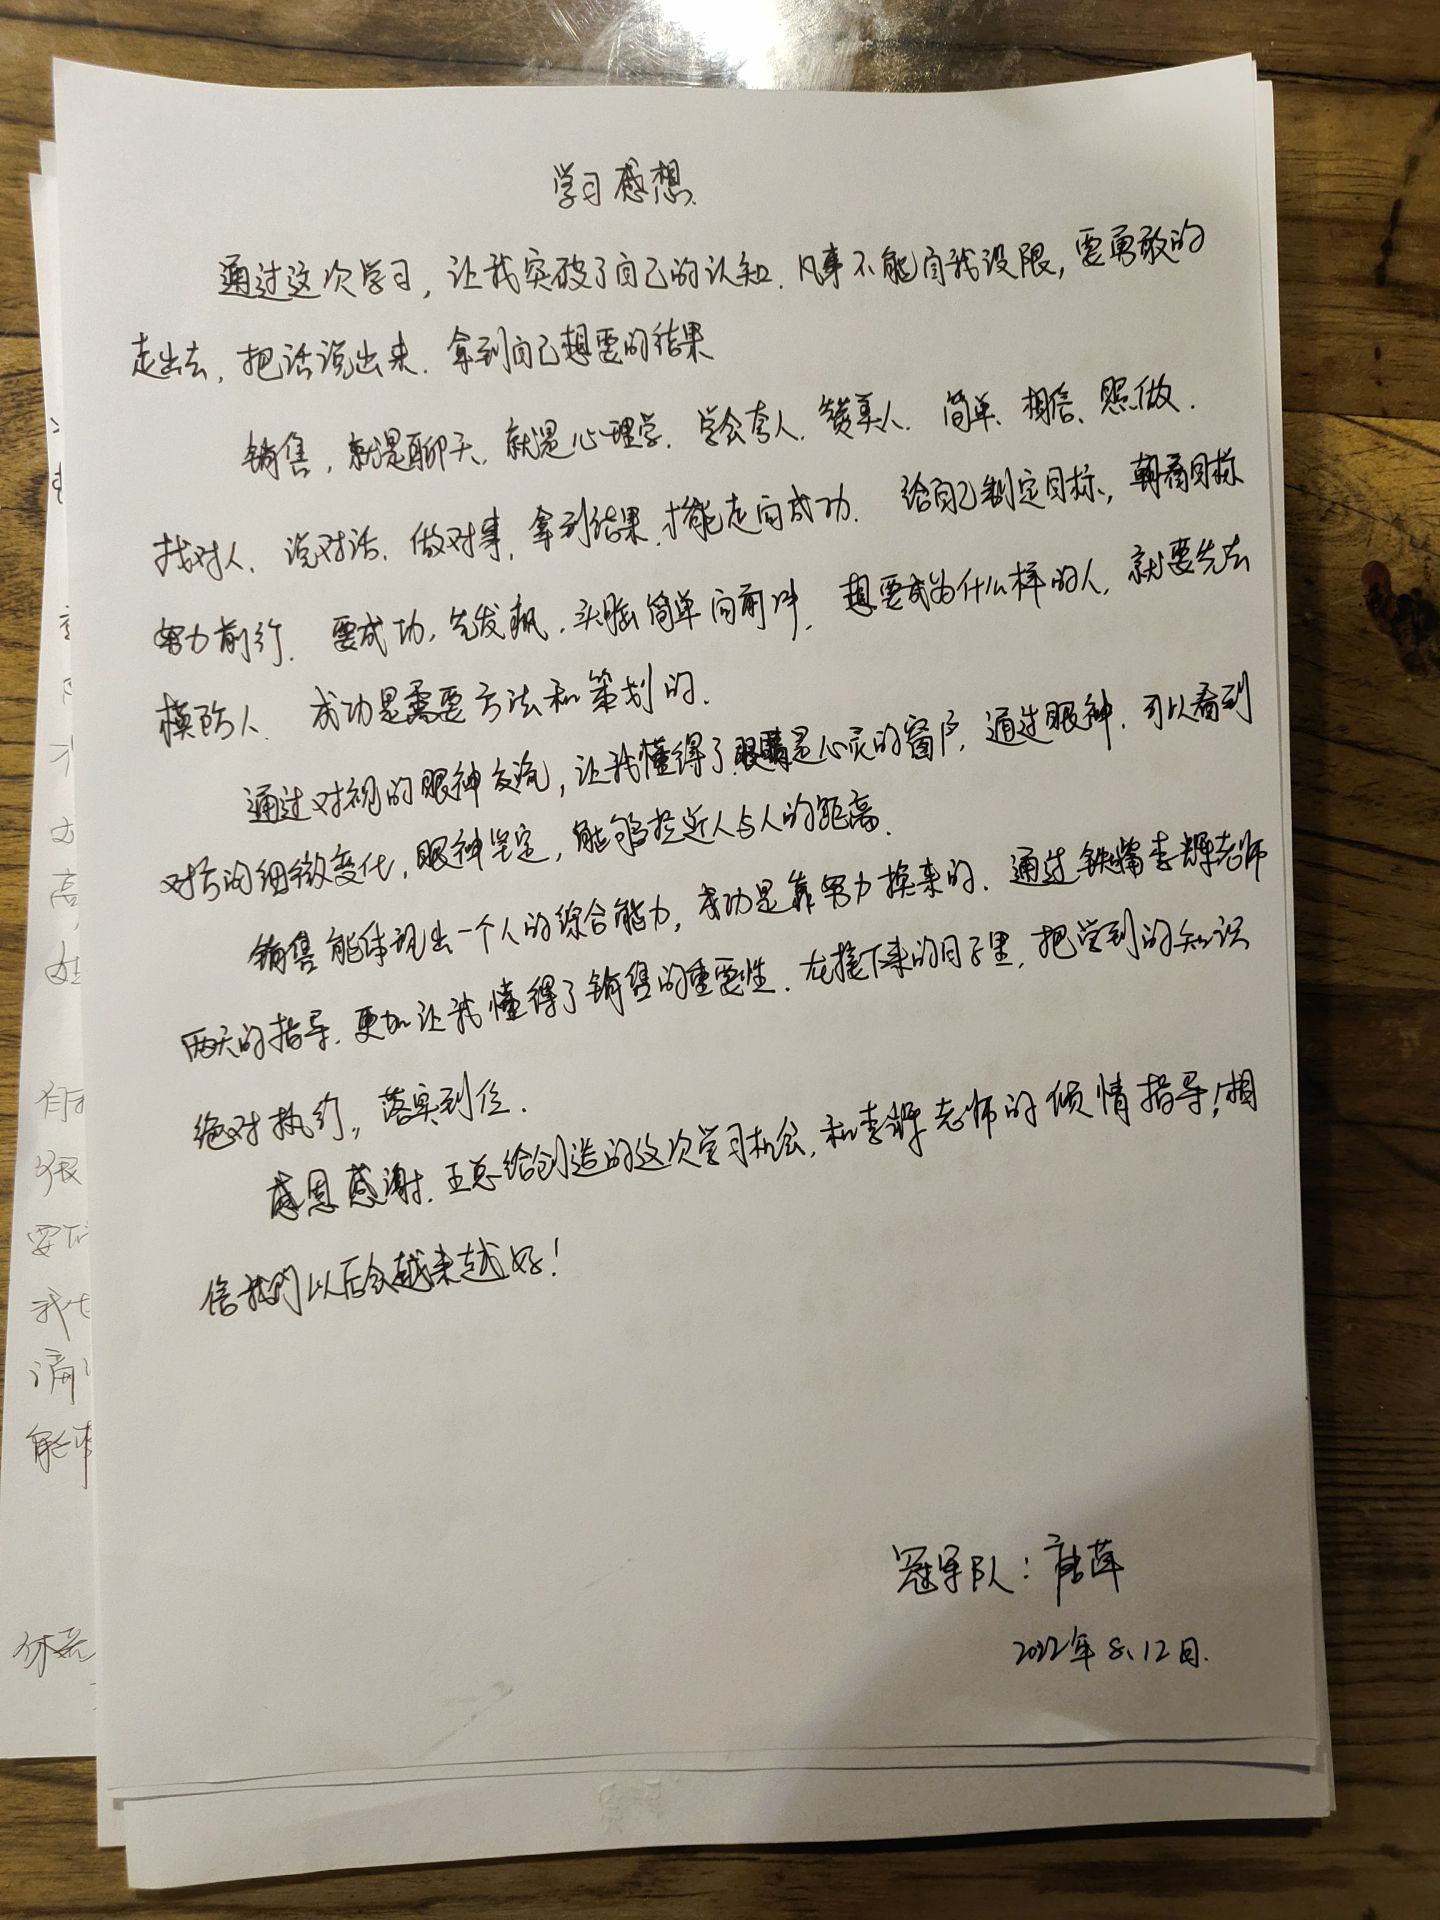 学习感想
通过这次学习，让我突破了自己的认知。凡事不能自我设限，要勇敢的
走出去，把话说出来。拿到自己想要的结果
销售，就是聊天。就是心理学。学会夸人、赞美人。简单、相信、照做。
找对人、说对话、做对事，拿到结果，才能走向成功。给自己制定目标，朝着目标
努力前行。要成功，先发疯，头脑简单向前冲。想要成为什么样的人，就要先去
模仿人。成功是需要方法和策划的。
通过对视的眼神交流，让我懂得了眼睛是心灵的窗户，通过眼神，可以看到
对方的细微变化，眼神坚定，能够拉近人与人的距离。
销售能体现出一个人的综合能力，成功是靠努力换来的。通过铁嘴李辉老师
两天的指导，更加让我懂得了销售的重要性。在接下来的日子里，把学到的知识
绝对执行，落实到位。
感恩感谢，王总给创造的这次学习机会，和李辉老师的倾情指导！相
信我们以后会越来越好！
冠军队：唐萍
2022年8.12日.